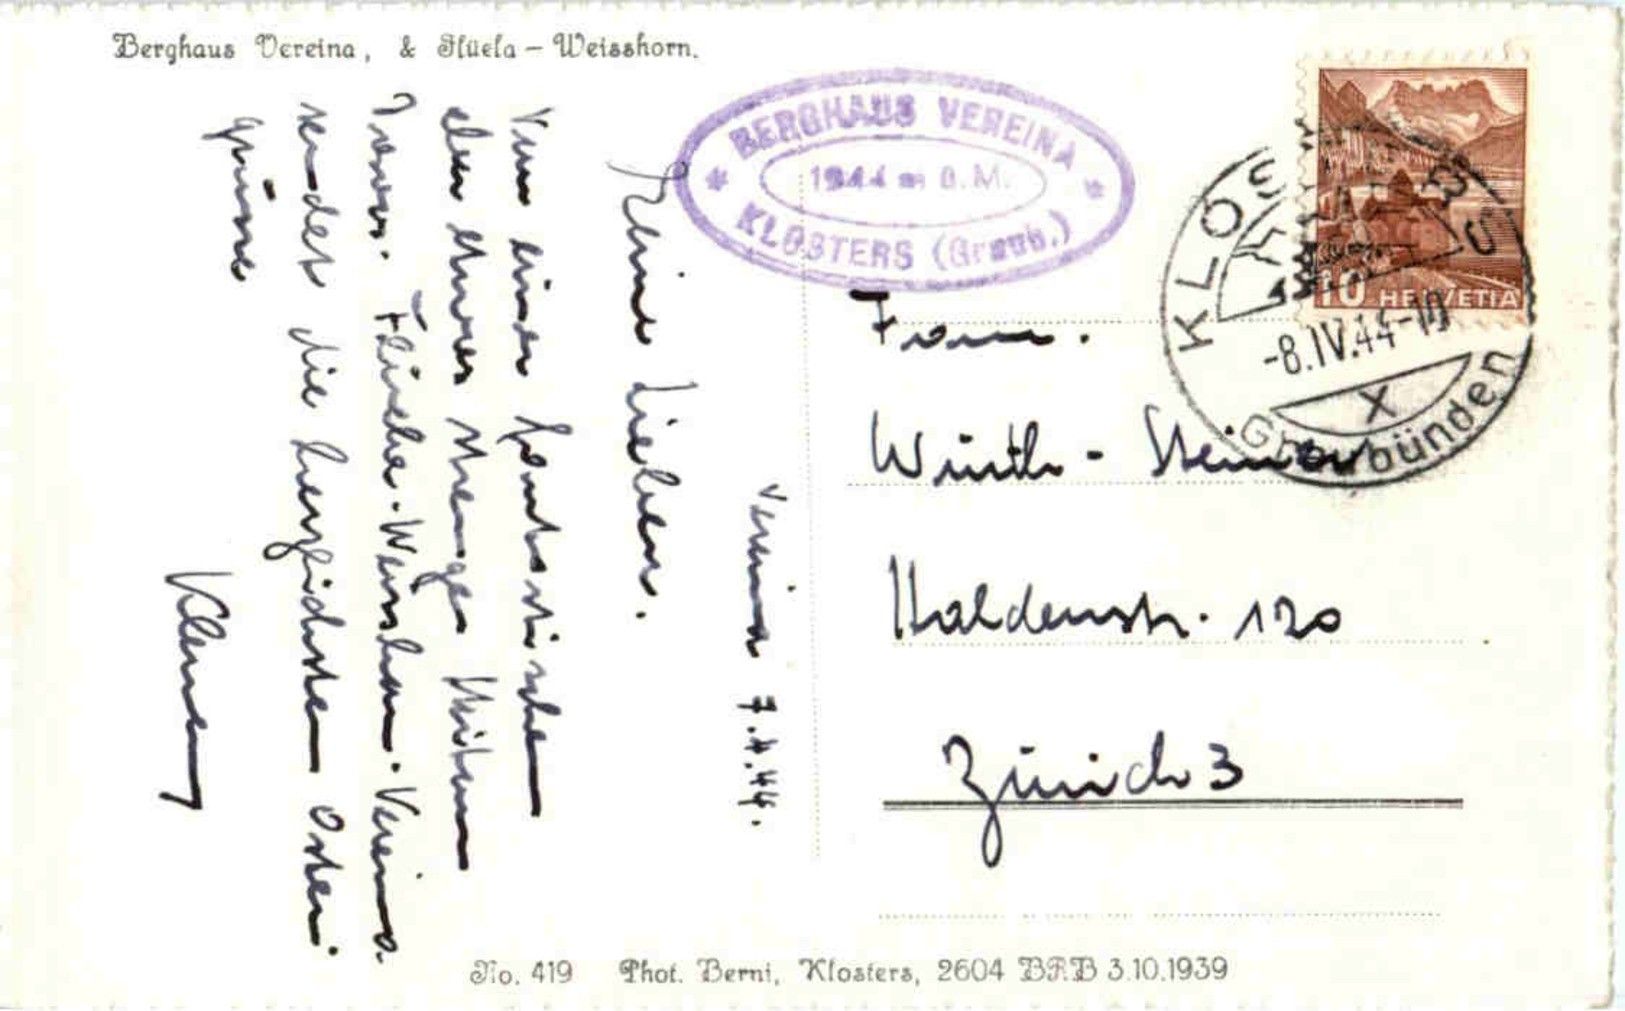 Berghaus Vereina, & Flüela – Weisshorn.
BERGHAUS VEREINA
1944 m ü. M.
KLOSTERS (Graub.)
KLOSTERS
-8.IV.44-10
X
Graubünden
10 HELVETIA
Vereina 7.4.44.
Meine Lieben.
Von einer fantastischen
Touren. Flüela-Weisshorn-Vereina
sendet die herzlichsten Oster
grüsse
Frau.
Würth - Steiner
Haldenstr. 120
Zürich 3
No. 419 Phot. Berni, Klosters, 2604 BRB 3.10.1939